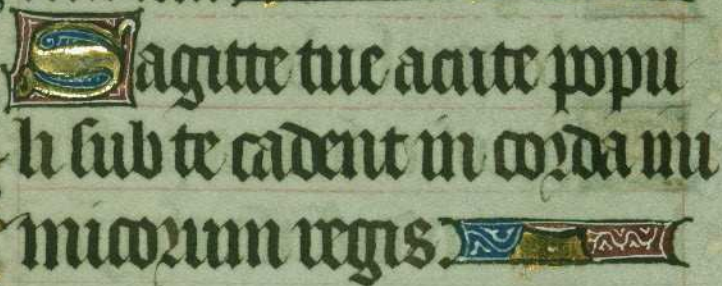 Sagitte tue acute popu
li sub te cadent in corda ini
micorum regis.